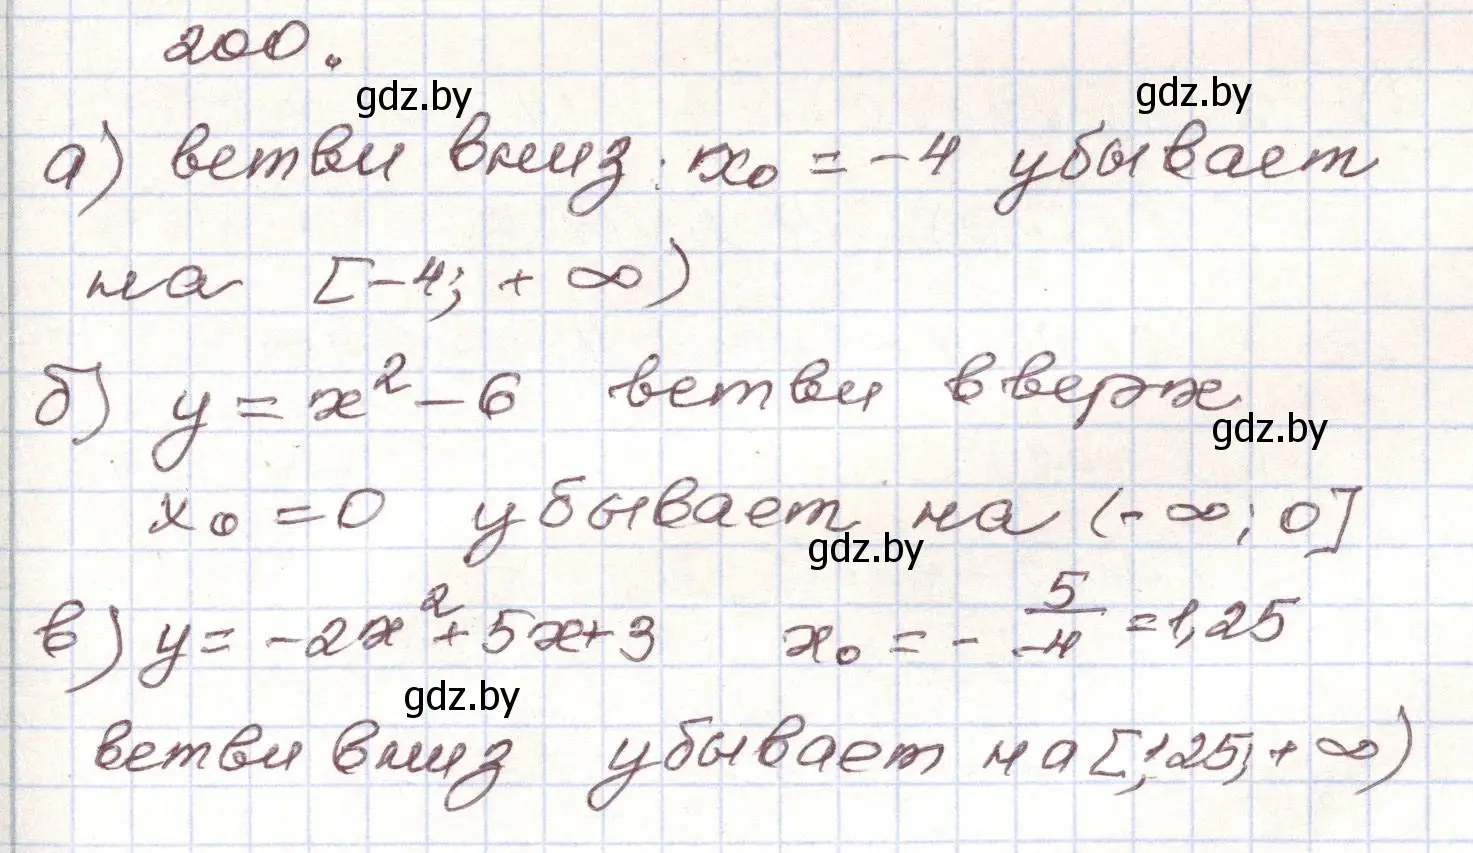 200.
gdz.by
gdz.by
а) ветви вниз x₀ = -4 убывает
на [-4; +∞)
б) y = x² - 6 ветви вверх
gdz.by
x₀ = 0 убывает на (-∞; 0]
gdz.by
в) y = -2x² + 5x + 3 x₀ = - 5/-4 = 1,25
gdz.by
ветви вниз убывает на [1,25; +∞)